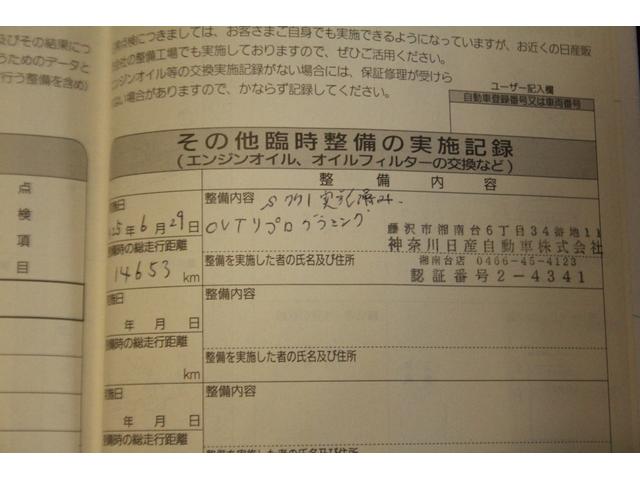 及びその結果につ
うためのデータと
行う整備を含め)
点検につきましては、お客さまご自身でも実施できるようになっていますが、お近くの日産販
会社の整備工場でも実施しておりますので、ぜひご活用ください。
エンジンオイル等の交換実施記録がない場合には、保証修理が受けら
ない場合がありますので、かならず記録してください。
ユーザー記入欄
自動車登録番号又は車両番号
その他臨時整備の実施記録
(エンジンオイル、オイルフィルターの交換など)
点
検
項
目
整備内容
施日
整備内容
実施済み
25年6月29日
CVTリプログラミング
備時の総走行距離
14653 km
藤沢市湘南台6丁目34番地11
神奈川日産自動車株式会社
整備を実施した者の氏名及び住所
湘南台店 0466-45-4123
認証番号2-4341
施日
整備内容
年 月 日
備時の総走行距離
整備を実施した者の氏名及び住所
km
施日
整備内容
年 月 日
備時の総走行距離
整備を実施した者の氏名及び住所